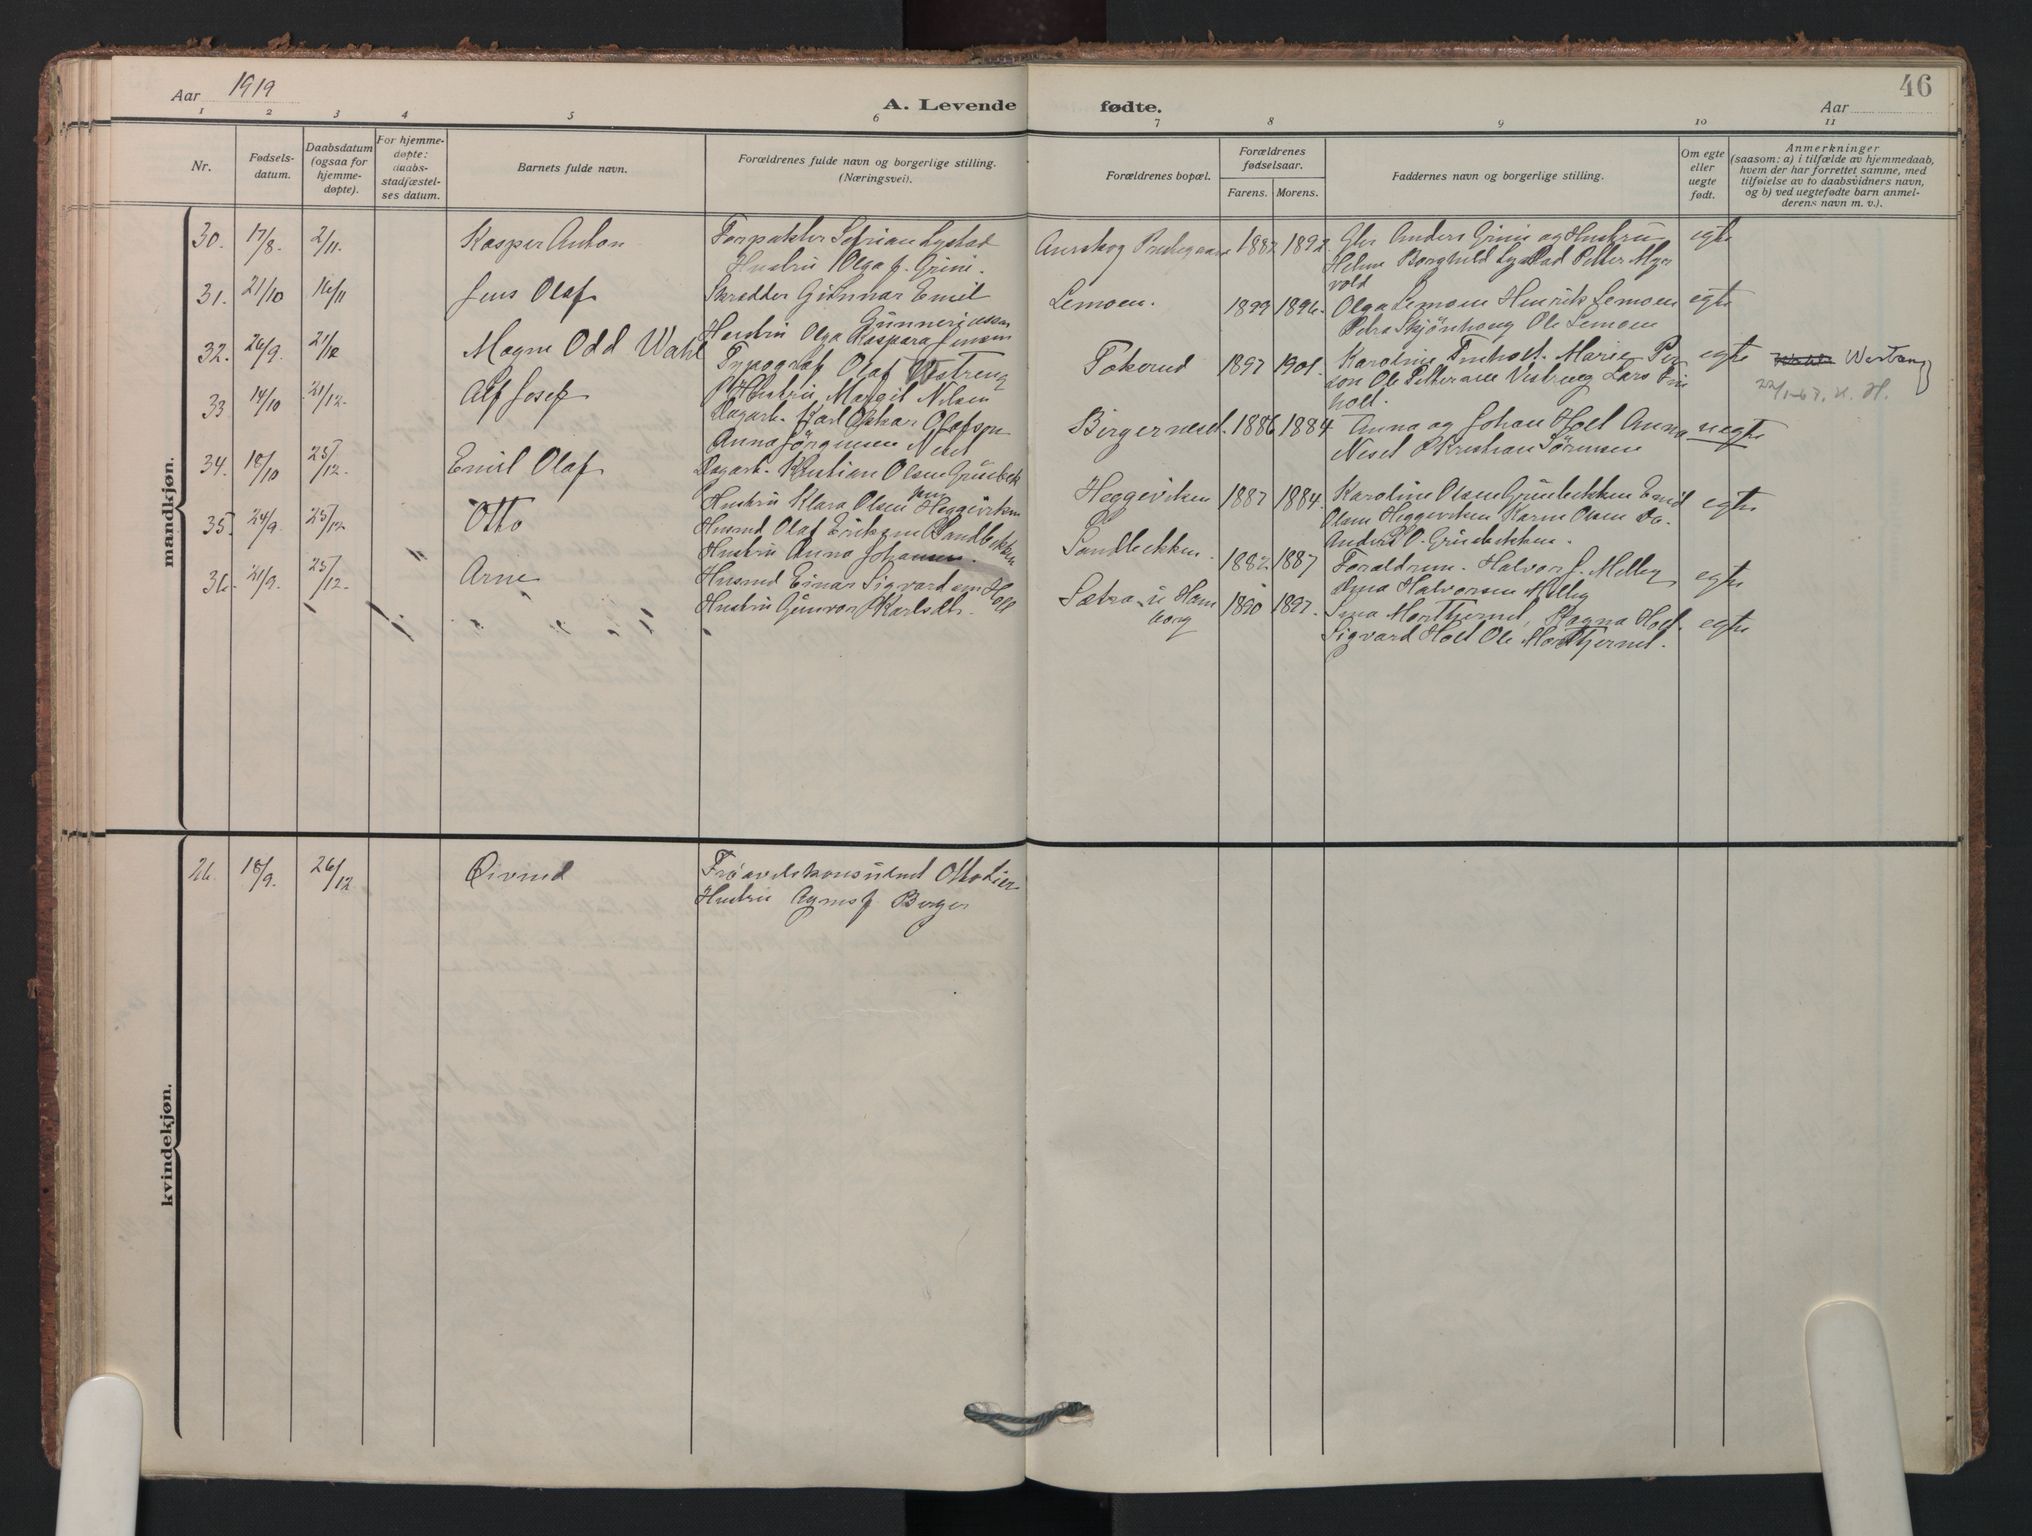 Aar 1919
A. Levende fødte.
46
Aar
1 2 3 4 5 6 7 8 9 10 11
Nr.
Fødsels-
datum.
Daabsdatum
(ogsaa for
hjemme-
døpte).
For hjemme-
døpte:
daabs-
stadfæstel-
ses datum.
Barnets fulde navn.
Forældrenes fulde navn og borgerlige stilling.
(Næringsvei).
Forældrenes bopæl.
Forældrenes
fødselsaar.
Farens. Morens.
Faddernes navn og borgerlige stilling.
Om egte
eller
uegte
født.
Anmerkninger
(saasom: a) i tilfælde av hjemmedaab,
hvem der har forrettet samme, med
tilføielse av to daabsvidners navn,
og b) ved uegtefødte barn anmel-
derens navn m. v.).
mandkjøn.
30. 17/8. 2/11. Kasper Anton
Forpakter Sefrian Lystad
Hustru Olga f. Grini.
Aurskog 1882 1892
Gbr Anders Grini og Hustru
Helene Borghild Lystad Petter Myr
vold
egte
31. 21/10 16/11 Jens Olaf
Skrædder Gunnar Emil
Gunneriussen
Hustru Olga Kaspara Jensen
Lemoen. 1899 1896.
Olga Lemoen Henrik Lemoen
Petra Skjønhaug Ole Lemoen
egte
32. 26/9. 21/12 Magne Odd Wahl
Typograf Olaf Vestreng
Hustru Margit Nilsen
Tokerud 1897 1901.
Karoline Finholt. Marie Per
son Ole Petter Vestreng Lars Fin
holt.
egte
Westeng
33 14/10 21/12. Alf Josef
Dagarb. Karl Oskar Olafsen
Anna Jørgensen Neset
Birgerneset. 1886 1884
Anna og Johan Holt Anna
Neset Kristian Sørensen
uegte
34. 18/10 25/12. Emil Olaf
Dagarb. Kristian Olsen Grinbek
ken
Hustru Klara Olsen Heggeviken
Heggeviken 1887 1884.
Karoline Olsen Grinbekken Emil
Olsen Heggeviken Karen Olsen Do.
Anders O. Grinbekken.
egte
35. 24/9. 25/12. Otto
Husmd Olaf Eriksen Sandbekken
Hustru Anna Johansen.
Sandbekken. 1882. 1887
Forældrene. Halvor J. Melby
Halvorsen Melby
egte
36. 21/9. 25/12. Arne
Husmd Einar Sigvardsen Holt
Hustru Gunvor Karlsdtr.
Sætra u Ham
borg
1890 1897.
Morthjernet, Ragna Holt.
Sigvard Holt Ole Morthjernet.
egte
kvindekjøn.
26. 18/9. 26/12 Øivind
Frøavlskonsulent Otto Lier
Hustru Agnes f. Berger